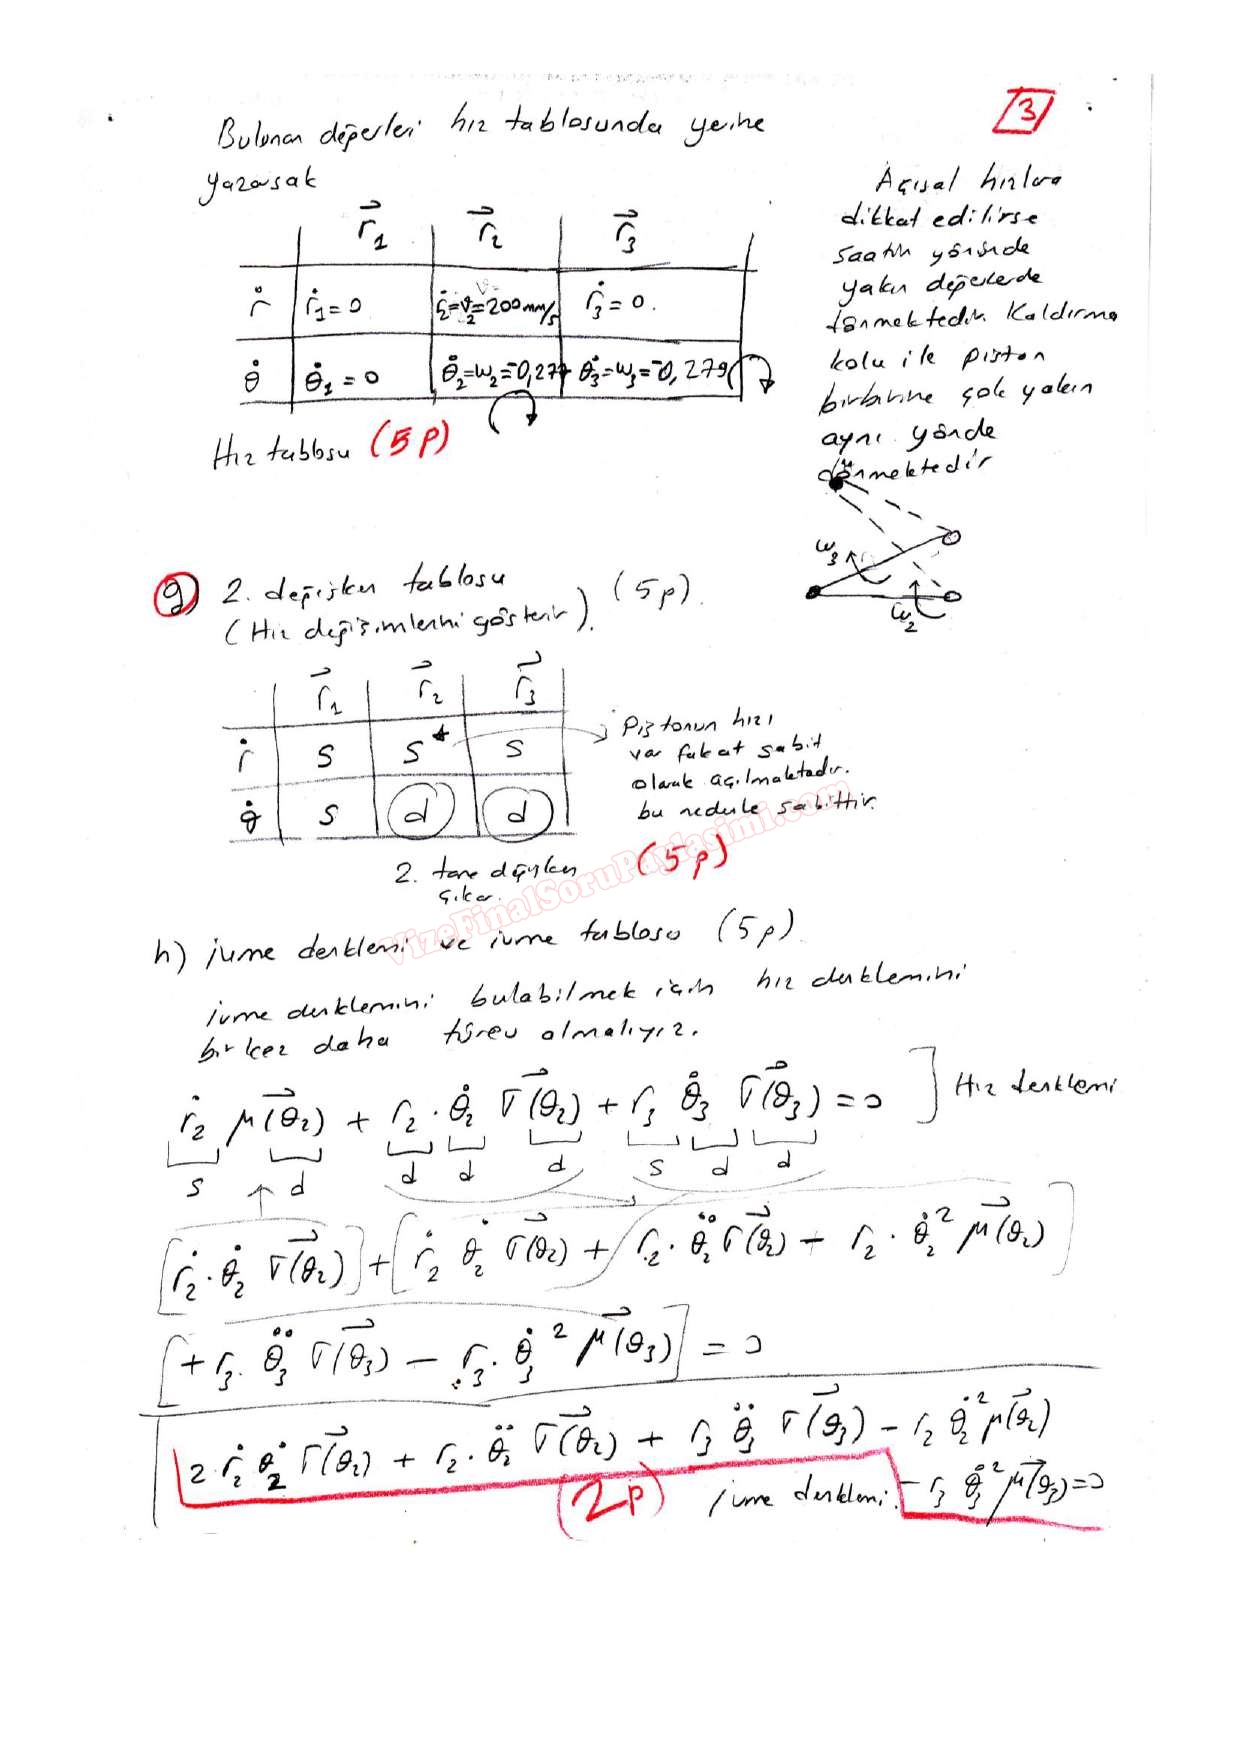 3
Bulunan değerleri hız tablosunda yerine
yazarsak
r⃗₁ r⃗₂ r⃗₃
ṙ ṙ₁=0 ṙ₂=v₂=200mm/s ṙ₃=0.
θ̇ θ̇₁=0 θ̇₂=w₂=-0,277 θ̇₃=w₃=-0,279
Hız tablosu (5p)
Açısal hızlara
dikkat edilirse
saatin yönünde
yakın değerlerde
dönmektedir. Kaldırma
kolu ile piston
birbirine çok yakın
aynı yönde
dönmektedir
w₃
w₂
g) 2. değişken tablosu (5p).
(Hız değişimlerini gösterir).
r⃗₁ r⃗₂ r⃗₃
ṙ s s* s
θ̇ s d d
Pistonun hızı
var fakat sabit
olarak açılmaktadır.
bu nedenle sabittir.
2. tane değişken (5p)
çıkar.
VizeFinalSoruPaylasimi.com
h) ivme denklemi ve ivme tablosu (5p)
ivme denklemini bulabilmek için hız denklemini
bir kez daha türev almalıyız.
ṙ₂ μ⃗(θ₂) + r₂·θ̇₂ σ⃗(θ₂) + r₃ θ̇₃ σ⃗(θ₃) = 0 ] Hız denklemi
s d d d d s d d
[ṙ₂·θ̇₂ σ⃗(θ₂)] + [ṙ₂ θ̇₂ σ⃗(θ₂) + r₂·θ̈₂ σ⃗(θ₂) - r₂·θ̇₂² μ⃗(θ₂)]
[+ r₃·θ̈₃ σ⃗(θ₃) - r₃·θ̇₃² μ⃗(θ₃)] = 0
2·ṙ₂ θ̇₂ σ⃗(θ₂) + r₂·θ̈₂ σ⃗(θ₂) + r₃ θ̈₃ σ⃗(θ₃) - r₂ θ̇₂² μ⃗(θ₂)
(2p) ivme denklemi. - r₃ θ̇₃² μ⃗(θ₃) = 0